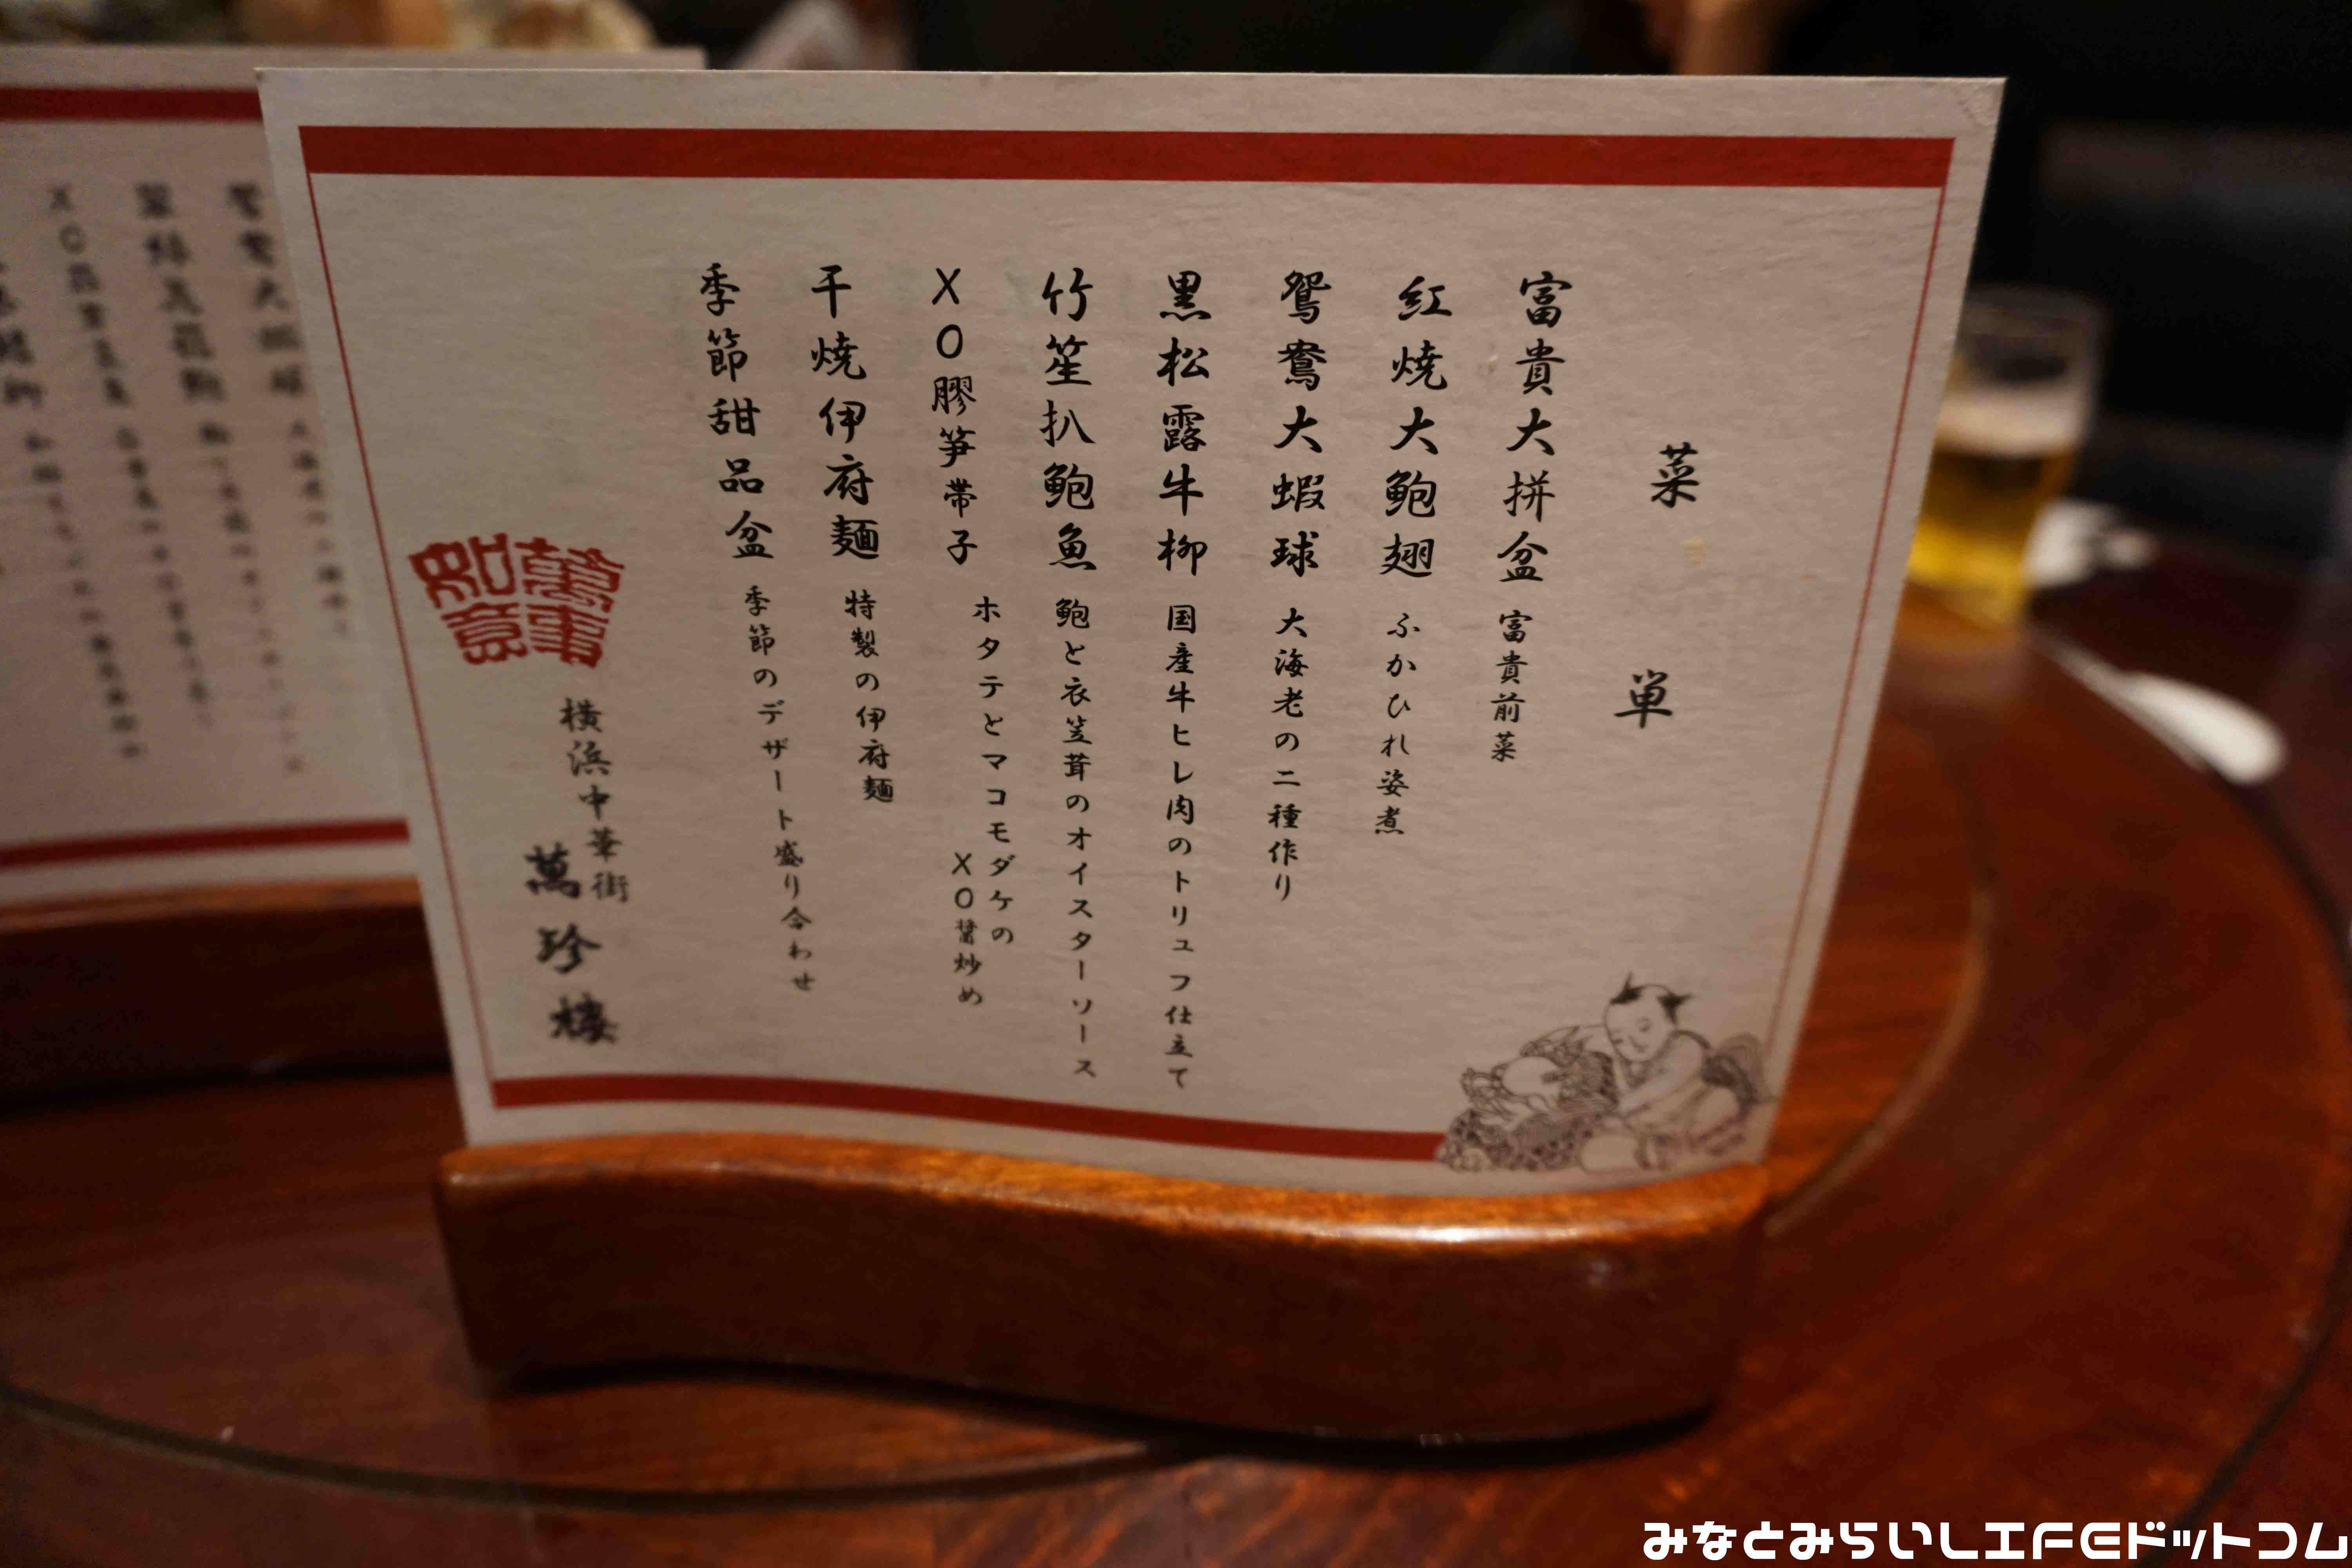 菜単
富貴大拼盆 富貴前菜
紅焼大鮑翅 ふかひれ姿煮
鴛鴦大蝦球 大海老の二種作り
黒松露牛柳 国産牛ヒレ肉のトリュフ仕立て
竹笙扒鮑魚 鮑と衣笠茸のオイスターソース
XO膠笋帯子 ホタテとマコモダケの
XO醤炒め
干焼伊府麺 特製の伊府麺
季節甜品盆 季節のデザート盛り合わせ
萬事如意
横浜中華街
萬珍樓
みなとみらいLIFEドットコム